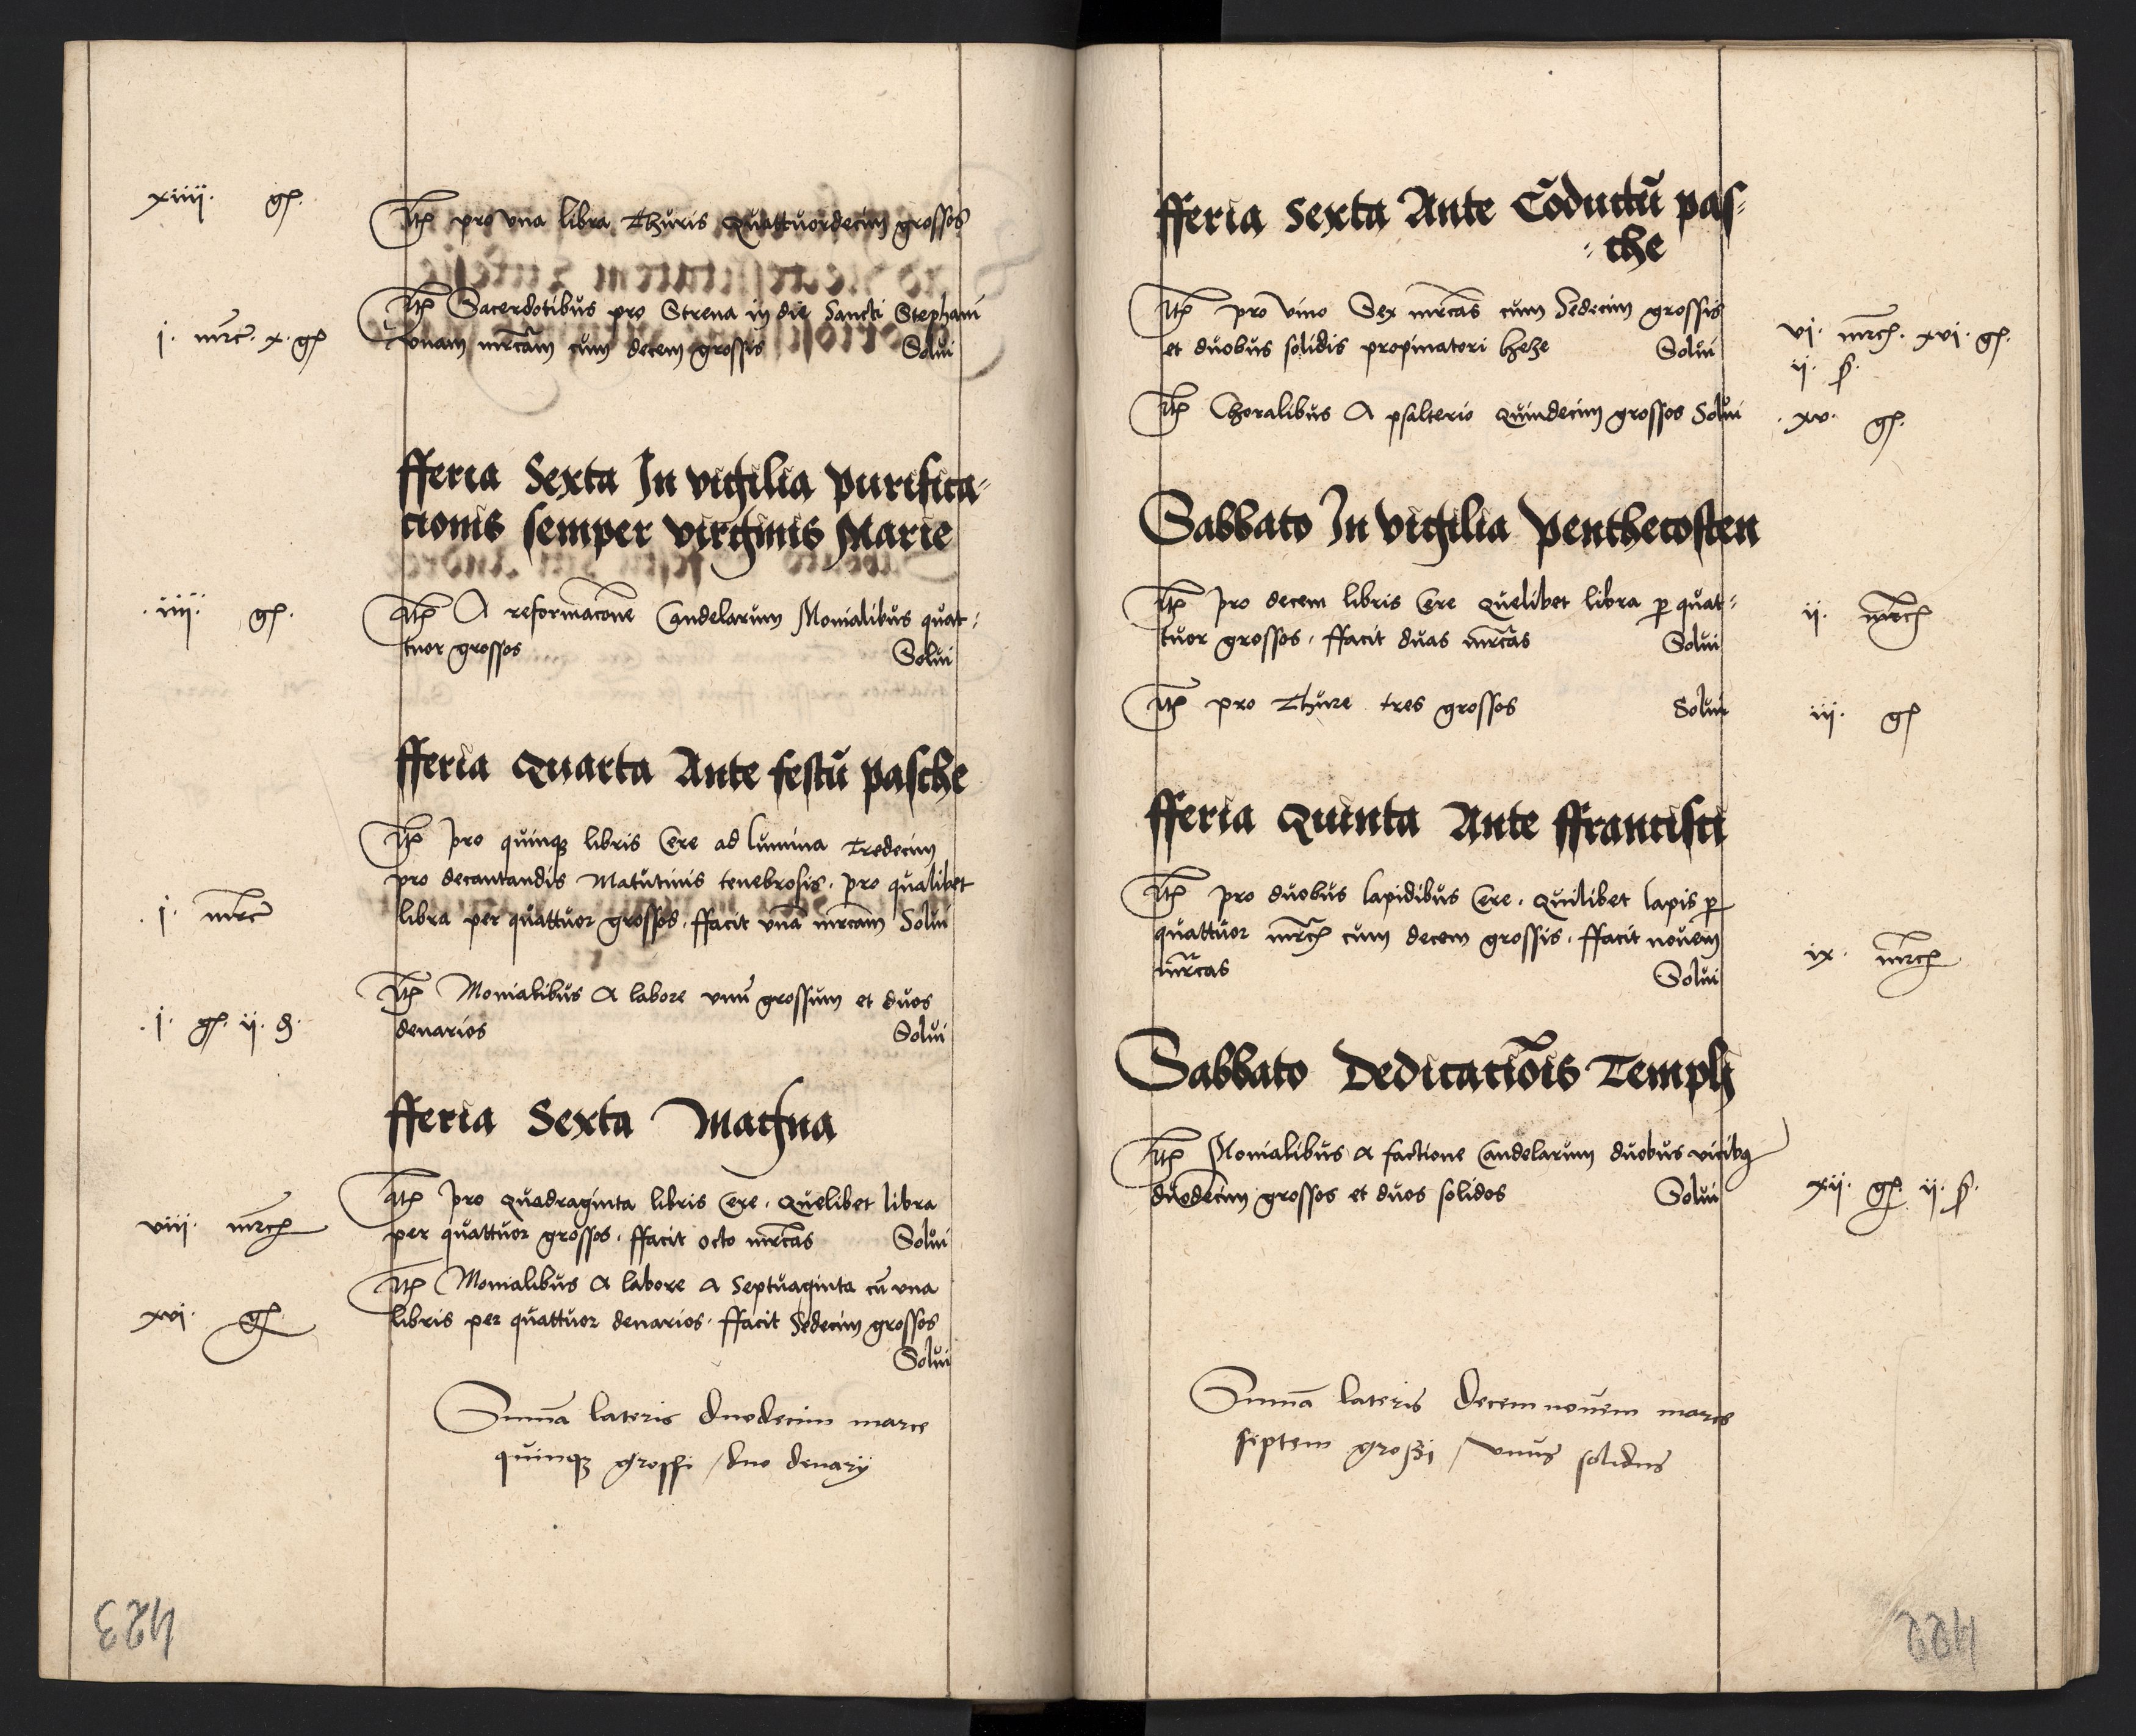 xiiii. gſ.
Itꝫ pro vna libra Thuris Quattuordecim grossos
Itꝫ Sacerdotibus pro Strena in die Sancti Stephani
j. mrc. x. gſ
vnam mrcam cum decem grossis Solui
fferia Sexta In vigilia purifica-
cionis semper virginis Marie
.iiii. gſ.
Itꝫ A reformacone Candelarum Monialibus quat-
tuor grossos Solui
fferia Quarta Ante festū pasche
Itꝫ pro quinqꝫ libris Cere ad lumina Tredecim
pro decantandis Matutinis tenebrosis. pro qualibet
.j. mrc
libra per quattuor grossos. ffacit vnā mrcam Solui
Itꝫ Monialibus A labore vnū grossum et duos
.j. gſ. ij. ₰.
denarios Solui
fferia Sexta Magna
Itꝫ pro Quadraginta libris Cere. Quelibet libra
viii. mrcꝫ
per quattuor grossos. ffacit octo mrcas Solui
Itꝫ Monialibus A labore A Septuaginta cū vna
xvi. gſ.
libris per quattuor denarios. ffacit Sedecim grossos
Solui
Summa lateris duodecim marce
quinqꝫ grossi / duo denarij
423
fferia Sexta Ante Cōductū pas-
-che
Itꝫ pro vino Sex mrcas cum Sedecim grossis
vi. mrcꝫ. xvi. gſ.
et duobus solidis propinatori heze Solui
ij. ẞ.
Itꝫ Choralibus A psalterio Quindecim grossos Solui
.xv. gſ.
Sabbato In vigilia penthecosten
Itꝫ pro decem libris Cere Quelibet libra ꝑ quat-
ij. mrcꝫ
tuor grossos. ffacit duas mrcas Solui
Itꝫ pro Thure tres grossos Solui
iij. gſ
fferia Quinta Ante ffrancisci
Itꝫ pro duobus lapidibus Cere. Quilibet lapis ꝑ
quattuor mrcꝫ cum decem grossis. ffacit nouem
ix. mrcꝫ
mrcas Solui
Sabbato Dedicaciōis Templi
Itꝫ Monialibus A factione Candelarum duobus vicibꝫ
duodecim grossos et duos solidos Solui
xij. gſ. ij. ẞ.
Summa lateris Decem nouem marce
septem großi / vnus solidus
422